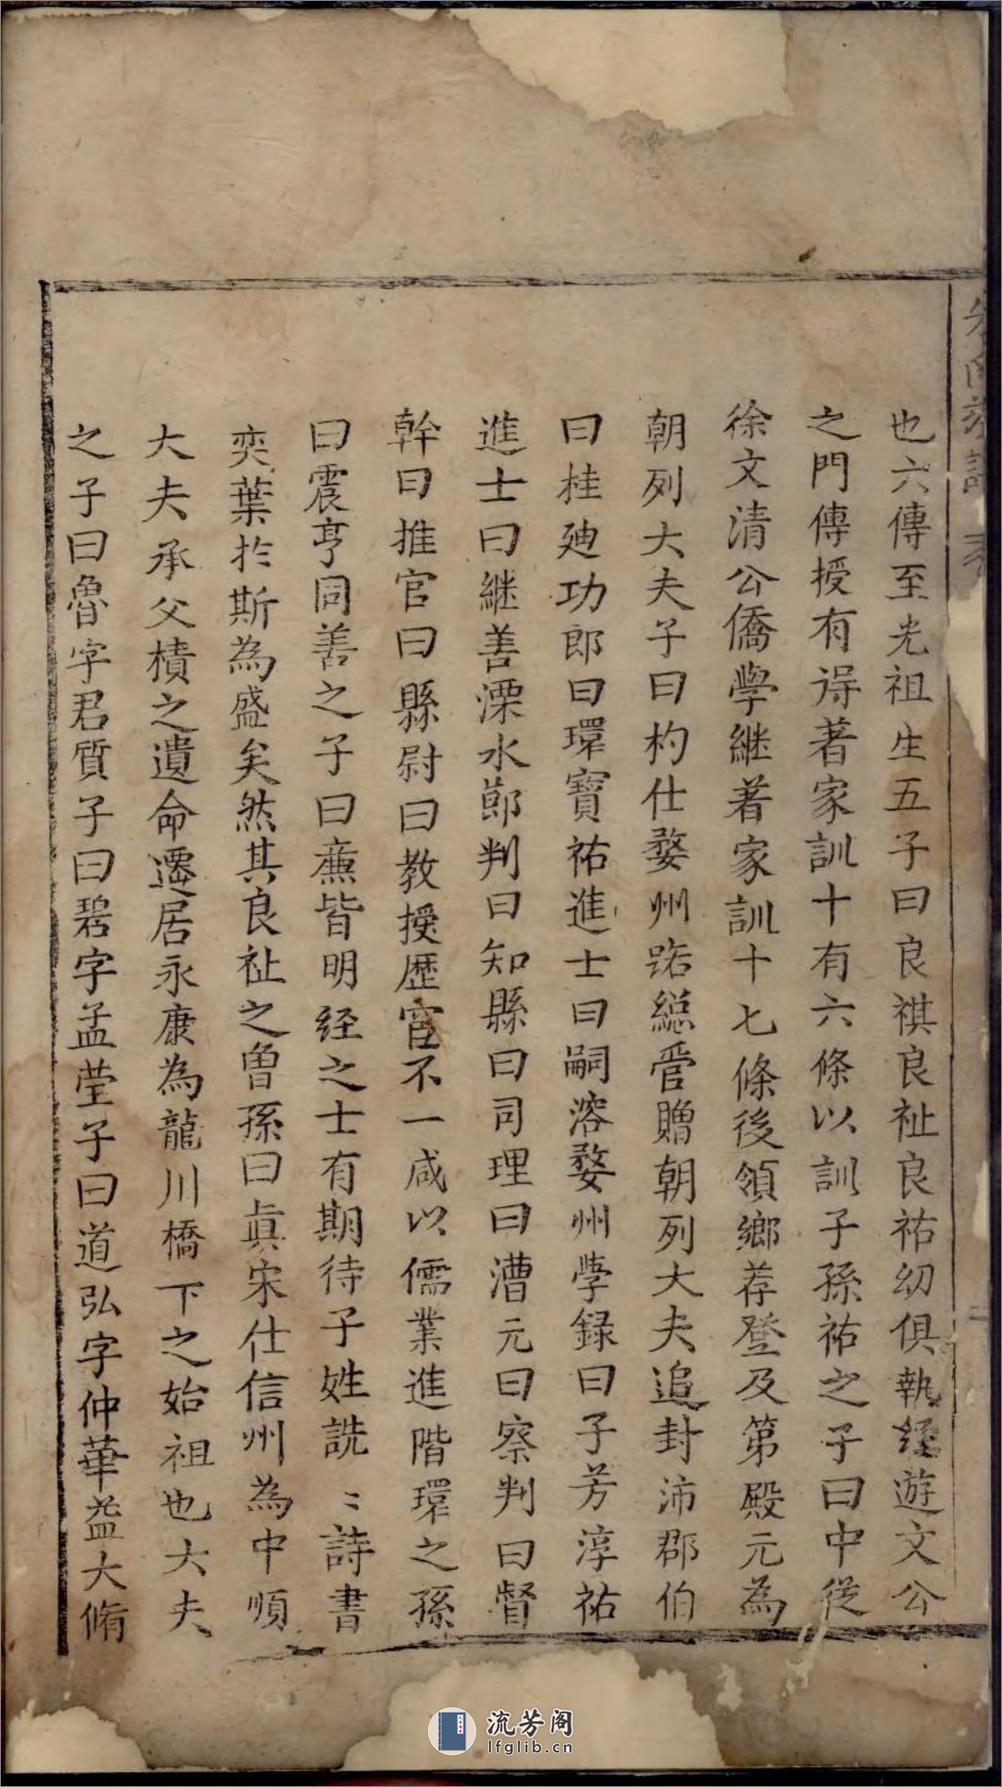 也六傳至光祖生五子曰良祺良祉良祐幼俱執經遊文公
之門傳授有得著家訓十有六條以訓子孫祐之子曰中從
徐文清公僑學継著家訓十七條後領鄉荐登及第殿元為
朝列大夫子曰杓仕婺州路緫管贈朝列大夫追封沛郡伯
曰桂廸功郎曰環寶祐進士曰嗣溶婺州學録曰子芳淳祐
進士曰継善溧水郎判曰知縣曰司理曰漕元曰察判曰督
幹曰推官曰縣尉曰教授歷官不一咸以儒業進階環之孫
曰震亨同善之子曰燕皆明經之士有期待子姓詵〻詩書
奕葉於斯為盛矣然其良祉之曾孫曰真宋仕信州為中順
大夫承父樍之遺命遷居永康為龍川橋下之始祖也大夫
之子曰魯字君質子曰碧字孟莹子曰道弘字仲華益大脩
流芳阁
lfglib.cn